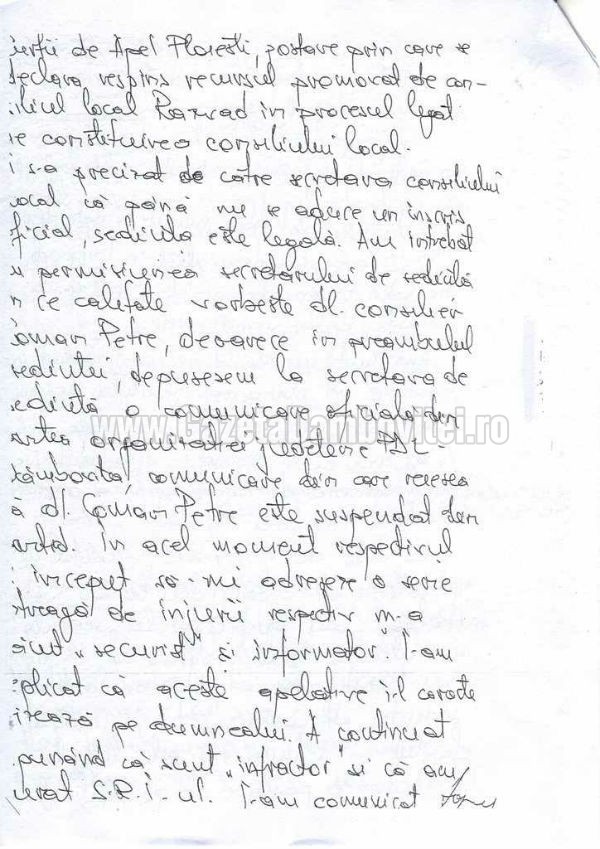 urții de Apel Ploiești, postare prin care se
declara respins recursul promovat de con-
iliul local Razvad în procesul legat
e constituirea consiliului local.
i s-a precizat de către secretara consiliului
ocal că până nu se aduce un înscris
ficial, sedința este legală. Am întrebat
u permisiunea secretarului de sedință
n ce calitate vorbeste dl. consilier
oman Petre, deoarece în preambulul
sedintei, depusesem la secretara de
sedință o comunicare oficială din
artea organizatiei județene PDL
âmbovița, comunicare din care reiesea
ă dl. Coman Petre este suspendat din
artid. În acel moment respectivul
început să-mi adreseze o serie
treagă de injurii respectiv m-a
"securist" și informator". I-am
plicat că aceste apelative îl caracte
izează pe dumnealui. A continuat
punând că sunt "infractor" si că am
S.R.I-ul. I-am comunicat
www.GazetaDambovitei.ro